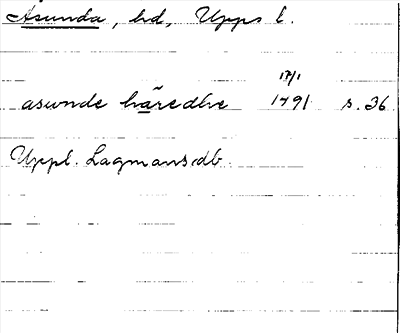 Åsunda, hd, Upps l.
17/1
asunde häredhe 1491 s. 36
Uppl. Lagmansdb.